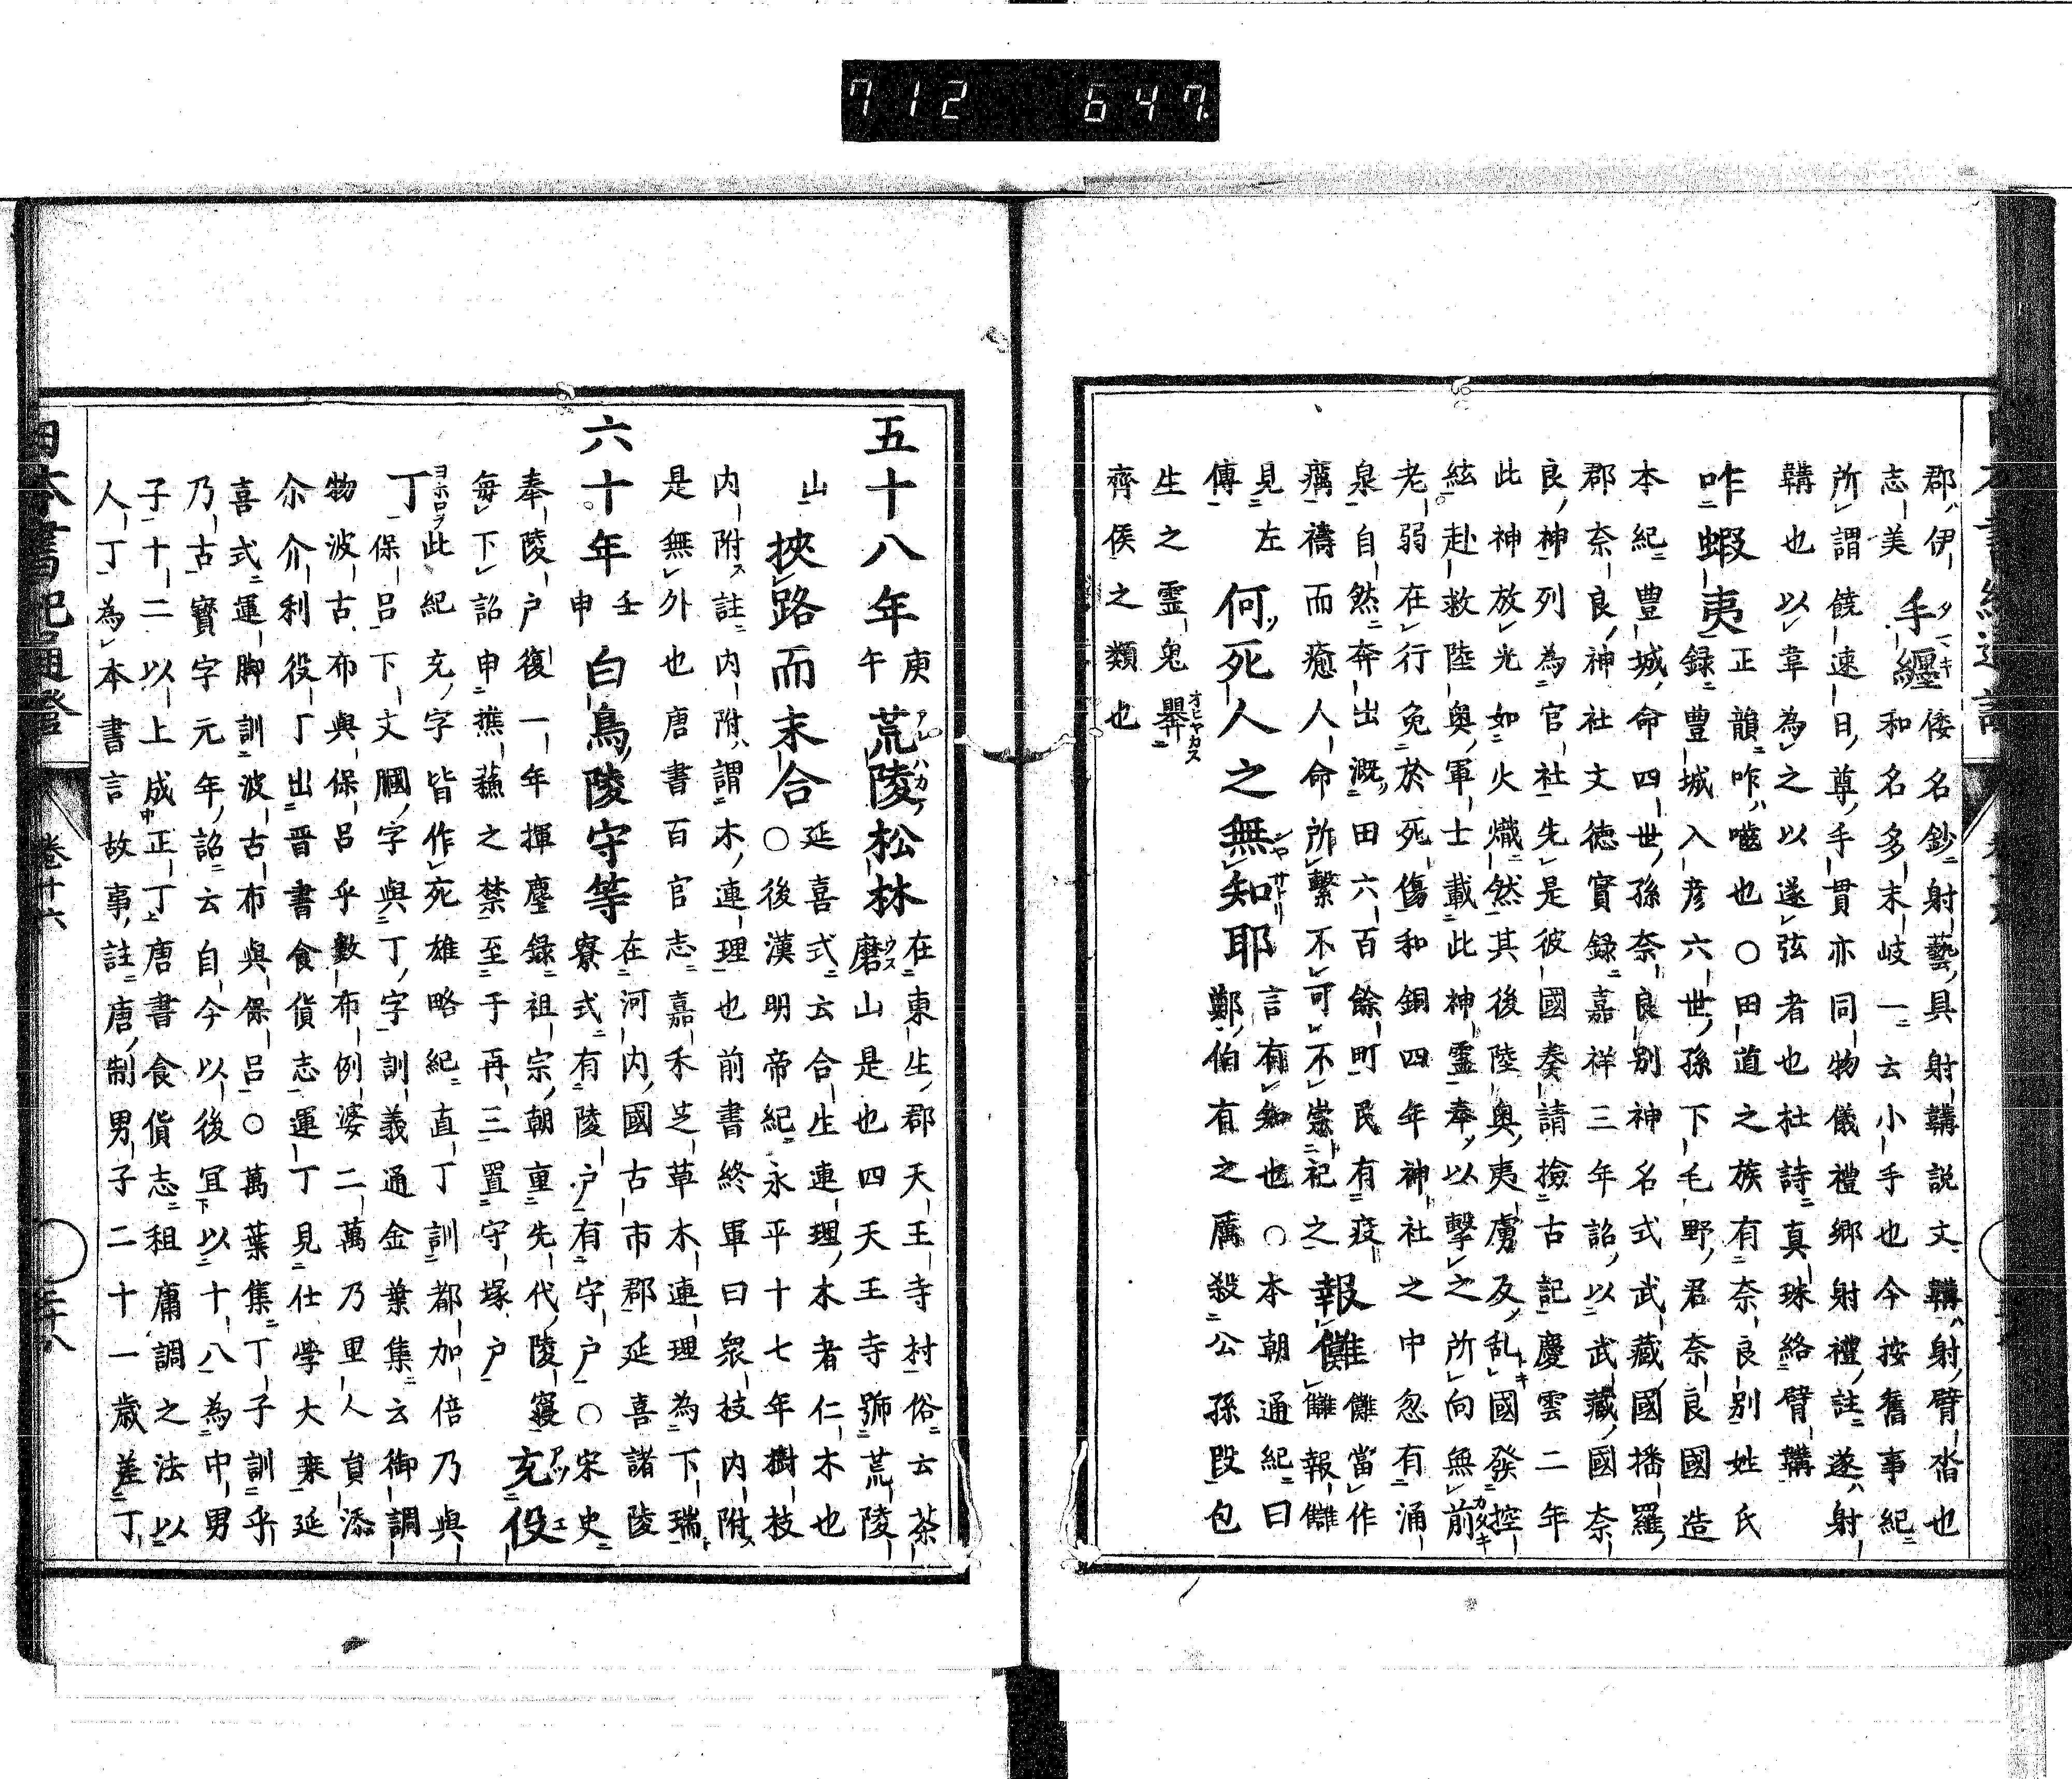 712 647
郡伊倭名鈔射藝具射韝説文韝射臂沓也
志美手纏タマキ和名多末岐一云小手也今按舊事紀
所謂饒速日尊手貫亦同物儀禮鄉射禮註遂射
韝也以韋為之以遂弦者也杜詩真珠絡臂韝
咋蝦夷正韻咋嚙也○田道之族有奈良別姓氏
録豊城入彦六世孫下毛野君奈良國造
本紀豊城命四世孫奈良別神名式武藏國播羅
郡奈良神社文徳實録嘉祥三年詔以武藏國奈
良神列為官社先是彼國奏請撿古記慶雲二年
此神放光如火熾然其後陸奥夷虜反乱國發控
絃赴救陸奥軍士載此神靈奉以擊之所向無前
老弱在行免於死傷和銅四年神社之中忽有涌
泉自然奔出漑田六百餘町民有疫
癘禱而癒人命所繫不可不崇祀之報讎讎當作讎報讎
見左傳何死人之無知耶言有知也○本朝通紀曰鄭伯有之厲殺公孫段包
生之霊鬼舉オビヤカス
齊侯之類也
五十八年庚午荒陵松林在東生郡天王寺村俗云茶
磨山是也四天王寺號荒陵
山挾路而末合延喜式云合生連理木者仁木也
○後漢明帝紀永平十七年樹枝
内附註内附謂木連理也前書終軍曰衆枝内附
是無外也唐書百官志嘉禾芝草木連理為下瑞
六十年壬申白鳥陵守等在河内國古市郡延喜諸陵
寮式有陵户有守户○宋史
奉陵户復一年揮麈録祖宗朝重先代陵寢
每下詔申樵蘓之禁至于再三置守塚户充役
丁ヨホロヲ此紀充字皆作死雄略紀直丁訓都加倍乃與
保呂下文膕字與丁字訓義通金葉集云御調
物波古布與保呂乎數布例婆二萬乃里人貟添
尒介利役丁出晋書食貨志運丁見仕學大乗延
喜式運脚訓波古布與保呂○萬葉集丁子訓乎
乃古寳字元年詔云自今以後宜以十八為中男
子十二以上成正丁唐書食貨志租庸調之法以
人丁為本書言故事註唐制男子二十一歲差丁
日本書紀通證
卷十六
三十八